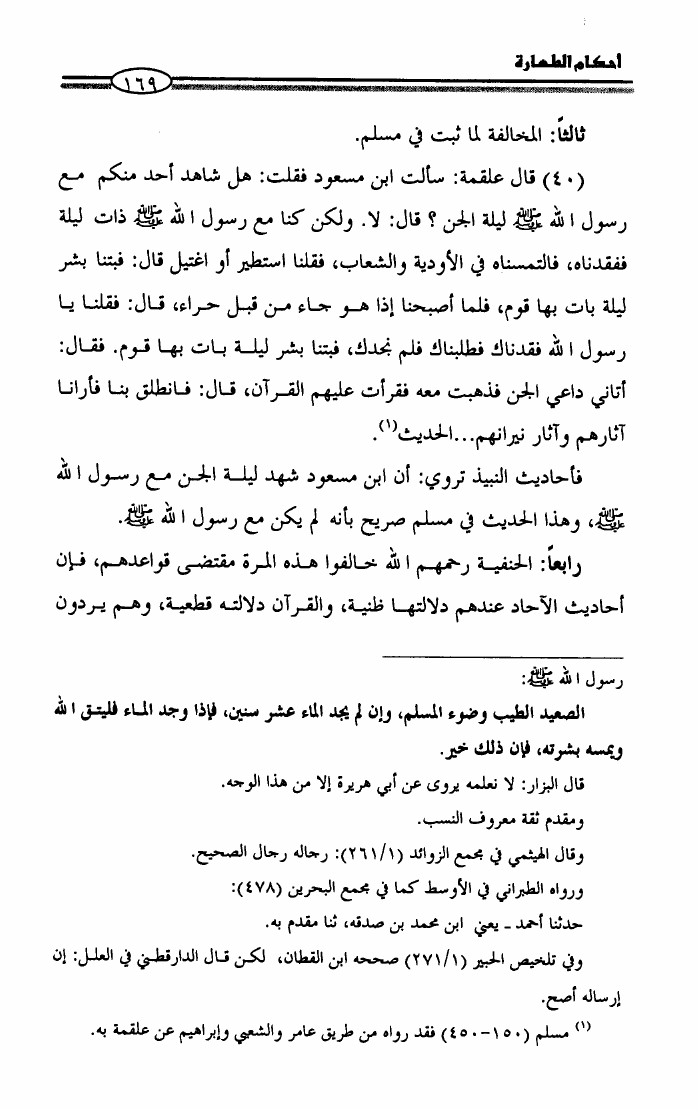 أحكام الطهارة
١٦٩
ثالثاً: المخالفة لما ثبت في مسلم.
(٤٠) قال علقمة: سألت ابن مسعود فقلت: هل شاهد أحد منكم مع
رسول الله ﷺ ليلة الجن ؟ قال: لا. ولكن كنا مع رسول الله ﷺ ذات ليلة
ففقدناه، فالتمسناه في الأودية والشعاب، فقلنا استطير أو اغتيل قال: فبتنا بشر
ليلة بات بها قوم، فلما أصبحنا إذا هو جاء من قبل حراء، قال: فقلنا يا
رسول الله فقدناك فطلبناك فلم نجدك، فبتنا بشر ليلة بات بها قوم. فقال:
أتاني داعي الجن فذهبت معه فقرأت عليهم القرآن، قال: فانطلق بنا فأرانا
آثارهم وآثار نيرانهم...الحديث(١).
فأحاديث النبيذ تروي: أن ابن مسعود شهد ليلة الجن مع رسول الله
ﷺ، وهذا الحديث في مسلم صريح بأنه لم يكن مع رسول الله ﷺ.
رابعاً: الحنفية رحمهم الله خالفوا هذه المرة مقتضى قواعدهم، فإن
أحاديث الآحاد عندهم دلالتها ظنية، والقرآن دلالته قطعية، وهم يردون
رسول الله ﷺ:
الصعيد الطيب وضوء المسلم، وإن لم يجد الماء عشر سنين، فإذا وجد الماء فليتق الله
ويمسه بشرته، فإن ذلك خير.
قال البزار: لا نعلمه يروى عن أبي هريرة إلا من هذا الوجه.
ومقدم ثقة معروف النسب.
وقال الهيثمي في مجمع الزوائد (٢٦١/١): رجاله رجال الصحيح.
ورواه الطبراني في الأوسط كما في مجمع البحرين (٤٧٨):
حدثنا أحمد - يعني ابن محمد بن صدقه، ثنا مقدم به.
وفي تلخيص الحبير (٢٧١/١) صححه ابن القطان، لكن قال الدارقطني في العلل: إن
إرساله أصح.
(١) مسلم (١٥٠-٤٥٠) فقد رواه من طريق عامر والشعبي وإبراهيم عن علقمة به.